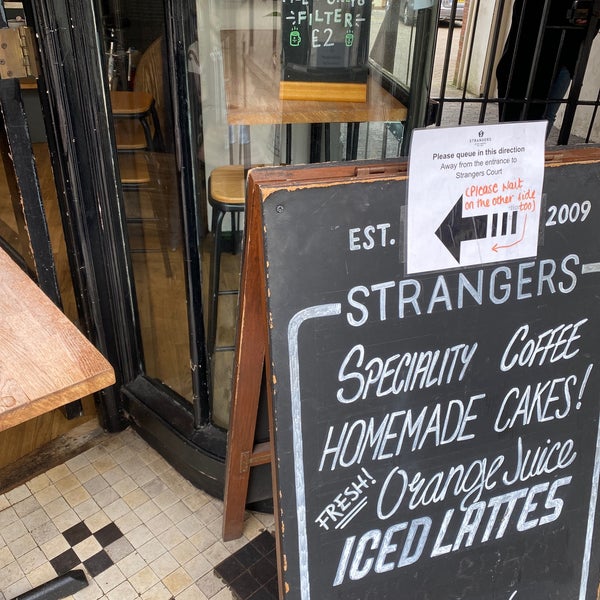 FILTER
£2
STRANGERS
Please queue in this direction
Away from the entrance to
Strangers Court
(Please Wait
on the other side
too)
EST. 2009
STRANGERS
SPECIALITY COFFEE
HOMEMADE CAKES!
FRESH! Orange Juice
ICED LATTES